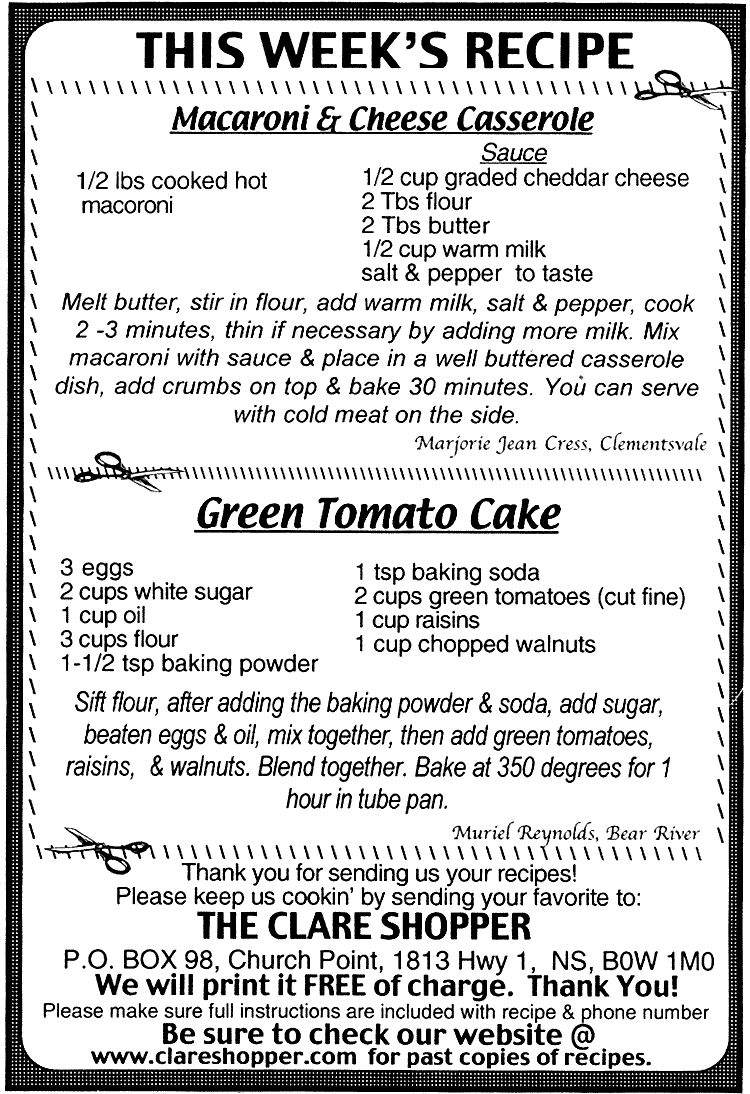 THIS WEEK'S RECIPE
Macaroni & Cheese Casserole
1/2 lbs cooked hot
macoroni
Sauce
1/2 cup graded cheddar cheese
2 Tbs flour
2 Tbs butter
1/2 cup warm milk
salt & pepper to taste
Melt butter, stir in flour, add warm milk, salt & pepper, cook
2 -3 minutes, thin if necessary by adding more milk. Mix
macaroni with sauce & place in a well buttered casserole
dish, add crumbs on top & bake 30 minutes. You can serve
with cold meat on the side.
Marjorie Jean Cress, Clementsvale
Green Tomato Cake
3 eggs
2 cups white sugar
1 cup oil
3 cups flour
1-1/2 tsp baking powder
1 tsp baking soda
2 cups green tomatoes (cut fine)
1 cup raisins
1 cup chopped walnuts
Sift flour, after adding the baking powder & soda, add sugar,
beaten eggs & oil, mix together, then add green tomatoes,
raisins, & walnuts. Blend together. Bake at 350 degrees for 1
hour in tube pan.
Muriel Reynolds, Bear River
Thank you for sending us your recipes!
Please keep us cookin' by sending your favorite to:
THE CLARE SHOPPER
P.O. BOX 98, Church Point, 1813 Hwy 1, NS, B0W 1M0
We will print it FREE of charge. Thank You!
Please make sure full instructions are included with recipe & phone number
Be sure to check our website @
www.clareshopper.com for past copies of recipes.